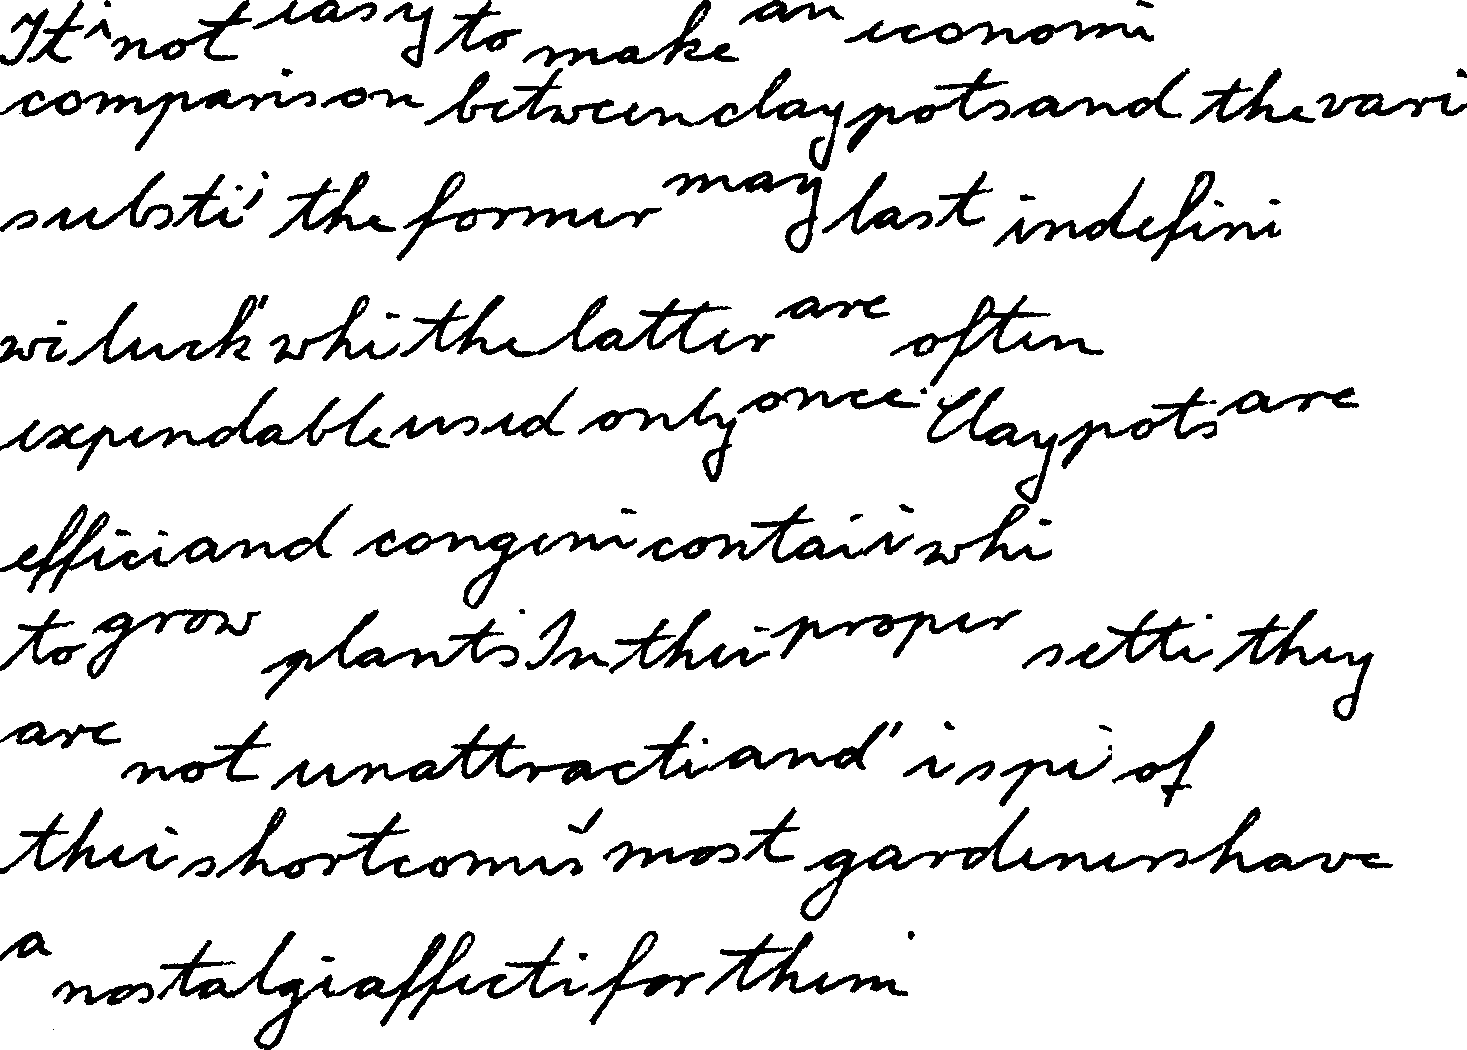 It i not easy to make an economi
comparison between clay pots and the vari
substi the former may last indefini
wi luck whi the latter are often
expendable used only once. Clay pots are
effici and congeni contai i whi
to grow plants In thei proper setti they
are not unattracti and i spi of
thei shortcomi s most gardeners have
a nostalgi affecti for them